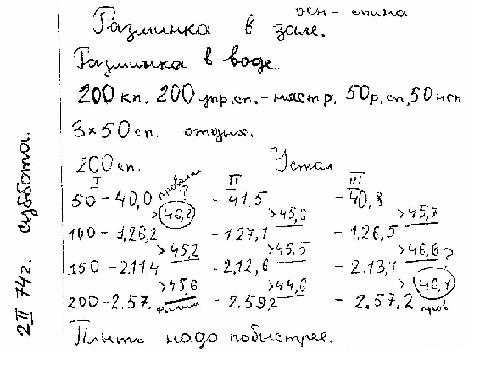 осн - спина
Разминка в зале.
Разминка в воде.
200 кп. 200 упр. сп. - настр. 50 р. сп, 50 н сп
3×50 сп. отдых.
200 сп. Устал
I провалил ? II III
50 - 40,0 - 41,5 - 40,8
> 46,2 > 45,6 > 45,7
100 - 1.26,2 - 1.27,1 - 1.26,5
> 45,2 > 45,5 > 46,6 ?
150 - 2.11 4 - 2.12,6 - 2.13,1
> 45,6 > 44,6 > 46,1
200 - 2.57. финиш - 2.59 2 - 2.57,2 пров
Плыть надо побыстрее.
2 II 74 г. суббота.